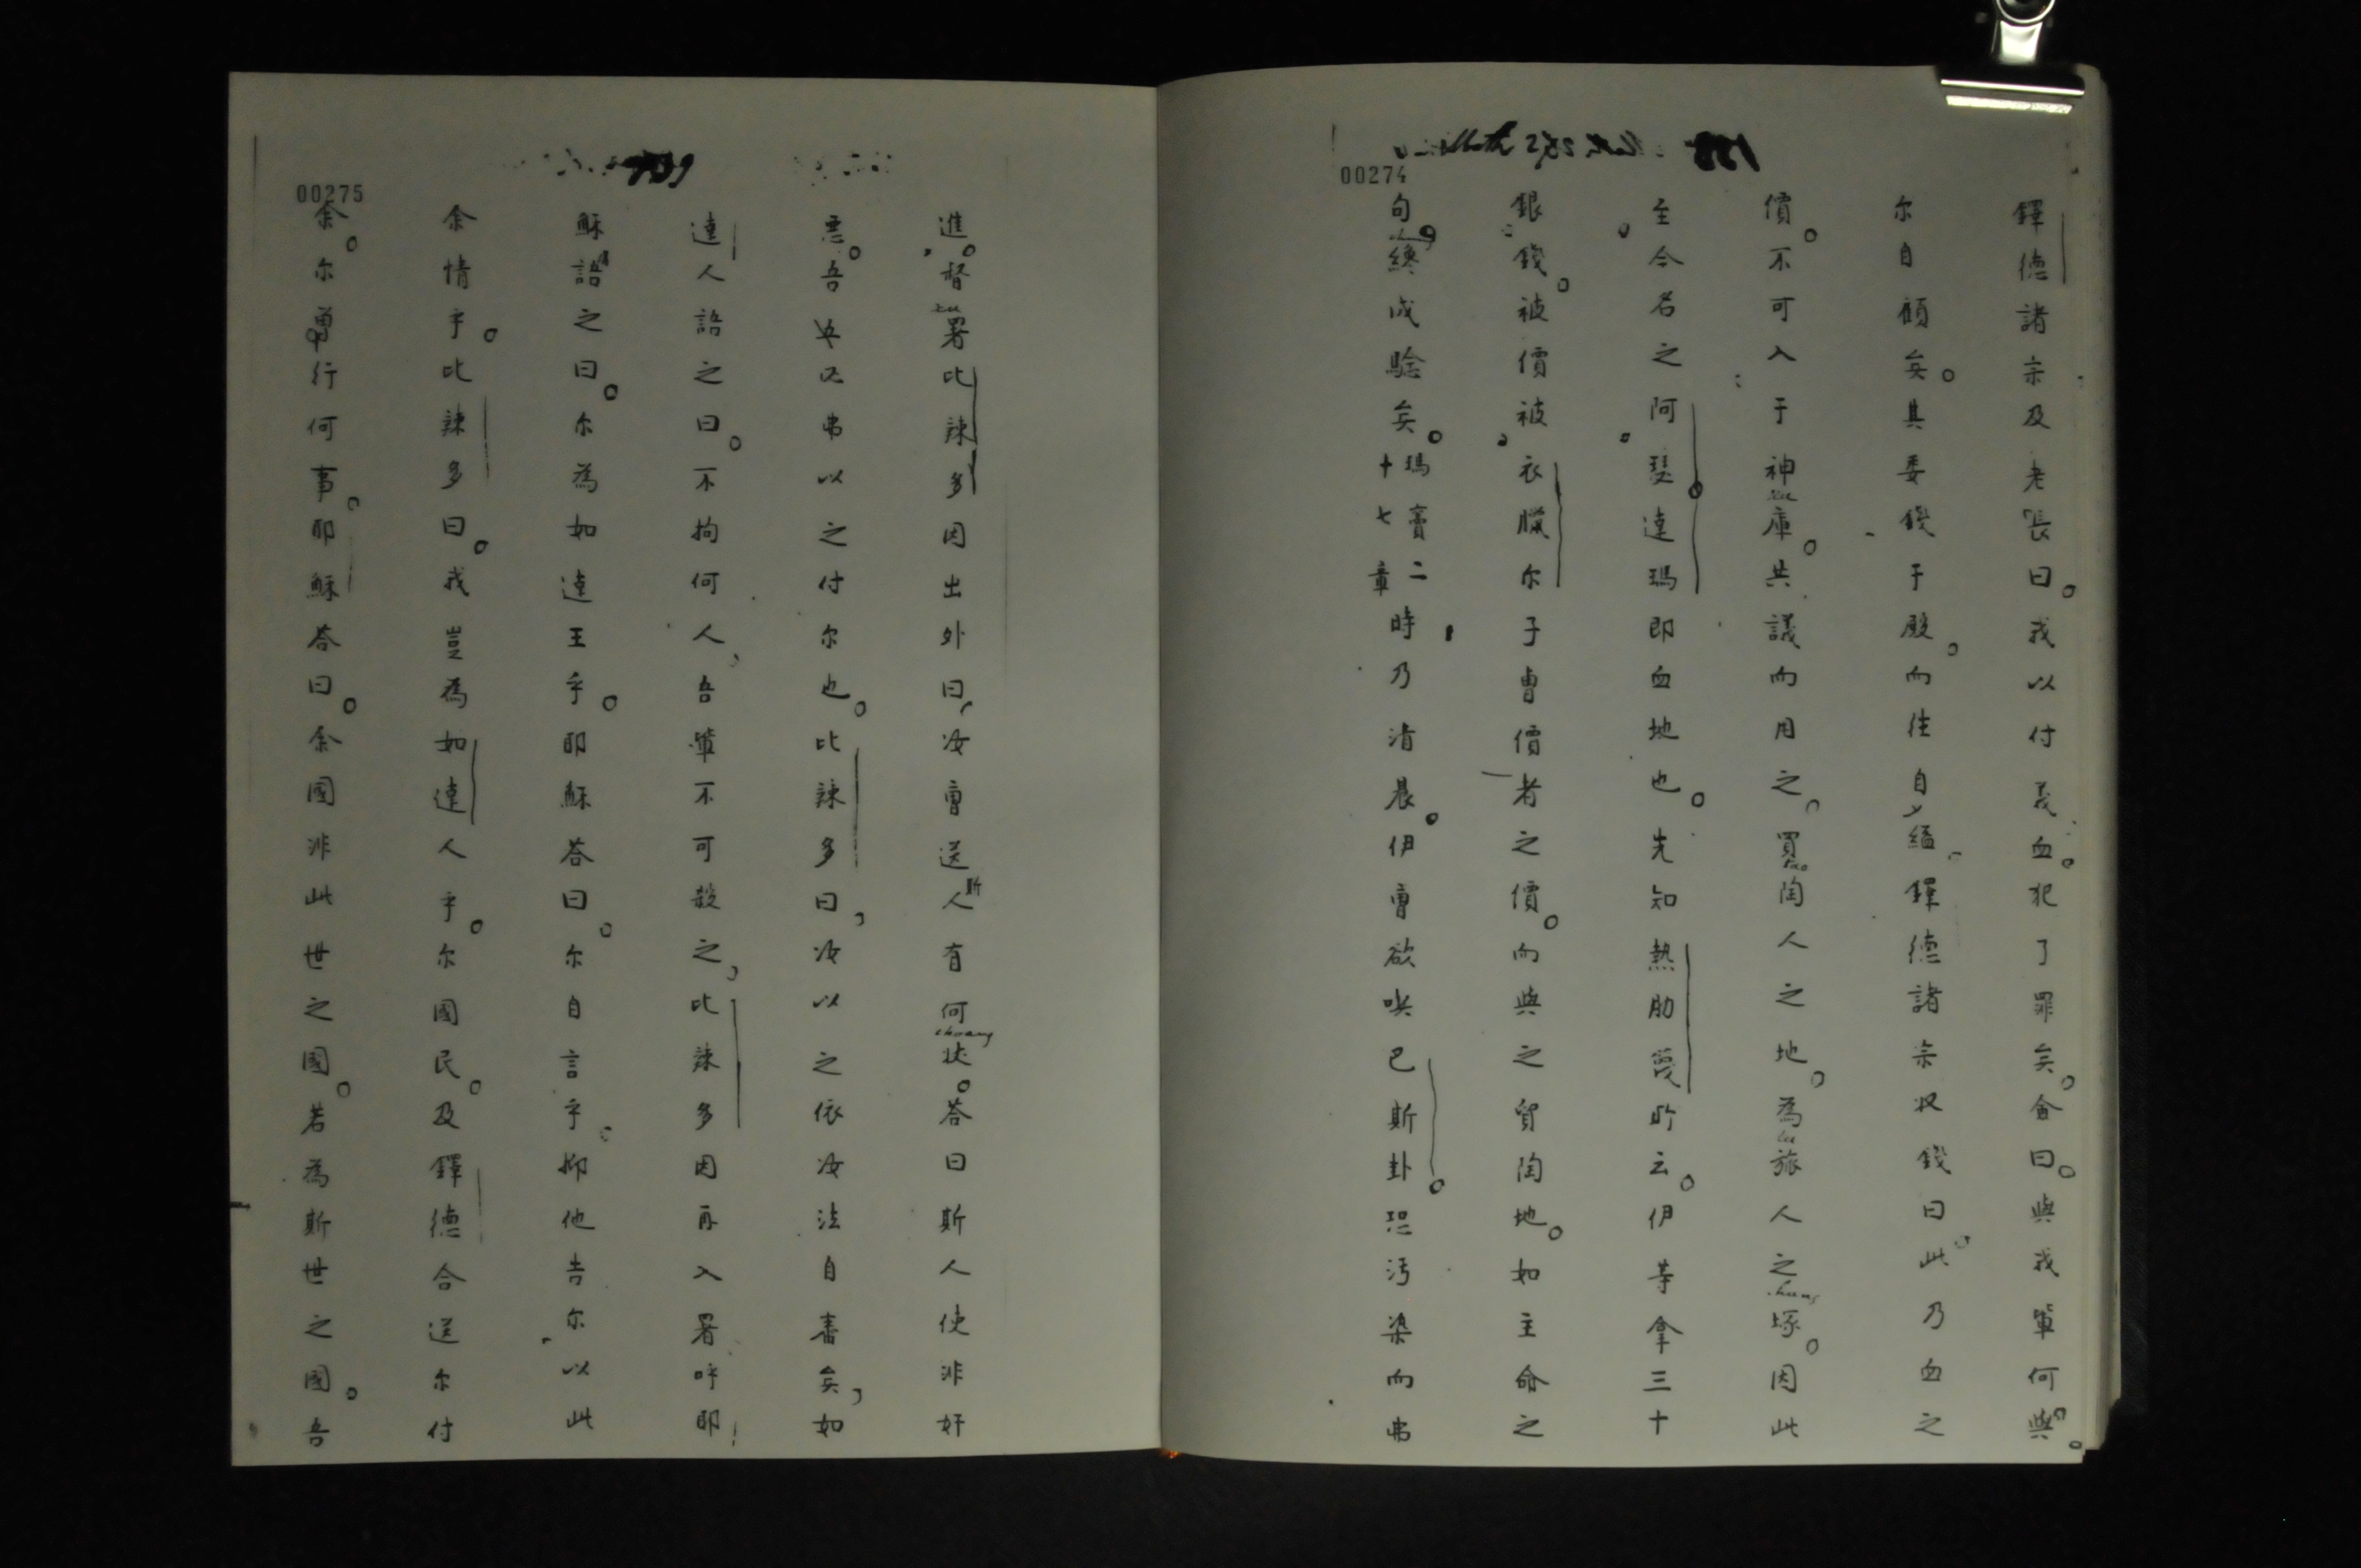 00274
鐸德諸宗及老長曰。我以付義血。犯了罪矣。僉曰。與我輩何與。
尔自顧矣。其委錢于殿。而往自縊。鐸德諸宗收錢曰。此乃血之
價。不可入于神庫。共議而用之。買陶人之地。為旅人之塚。因此
至今名之阿瑟達瑪即血地也。先知熱肋蔑所云。伊等拿三十
銀錢。被價被衣臘尔子曹價者之價。而與之貿陶地。如主命之
句。纔成驗矣。瑪竇二十七章時乃清晨。伊曹欲喫巴斯卦。恐污染而弗
00275
進。督署比辣多因出外曰，汝曹送斯人有何狀。荅曰斯人使非奸
悪。吾必弗以之付尔也。比辣多曰，汝以之依汝法自審矣，如
達人語之曰。不拘何人，吾輩不可殺之，比辣多因再入署呼耶
穌語之曰。尔為如達王乎。耶穌荅曰。尔自言乎。抑他告尔以此
余情乎。比辣多曰。我豈為如達人乎。尔國民。及鐸德合送尔付
余。尔曾行何事。耶穌荅曰。余國非此世之國。若為斯世之國。吾